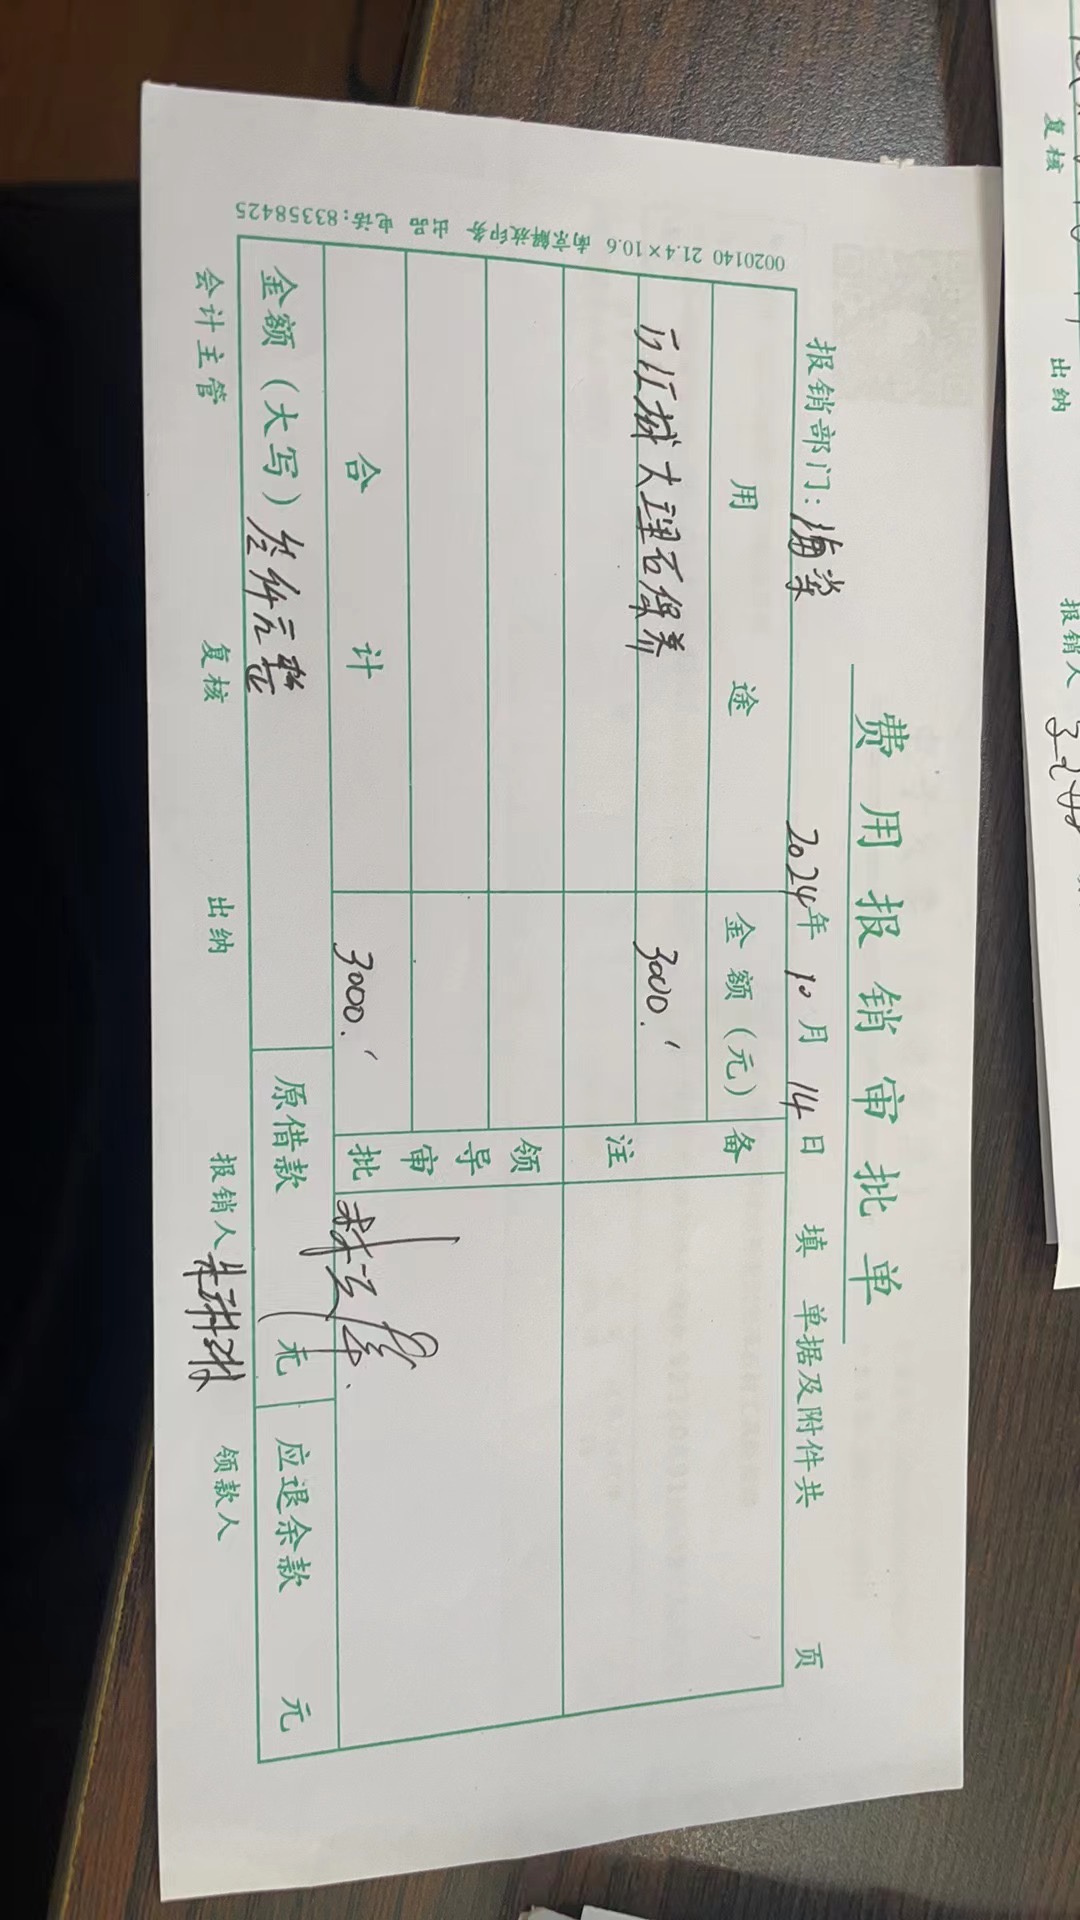 费用报销审批单
报销部门：海棠 2024年10月14日 填 单据及附件共 页
用途 金额（元） 备注
大理石保养 3000.
领导审批
合计 3000.
金额（大写）叁仟元整 原借款 元 应退余款 元
会计主管 复核 出纳 报销人 朱 领款人
0020140 21.4×10.6 南京解放印务 出品 电话：83358425
复核 出纳 报销人